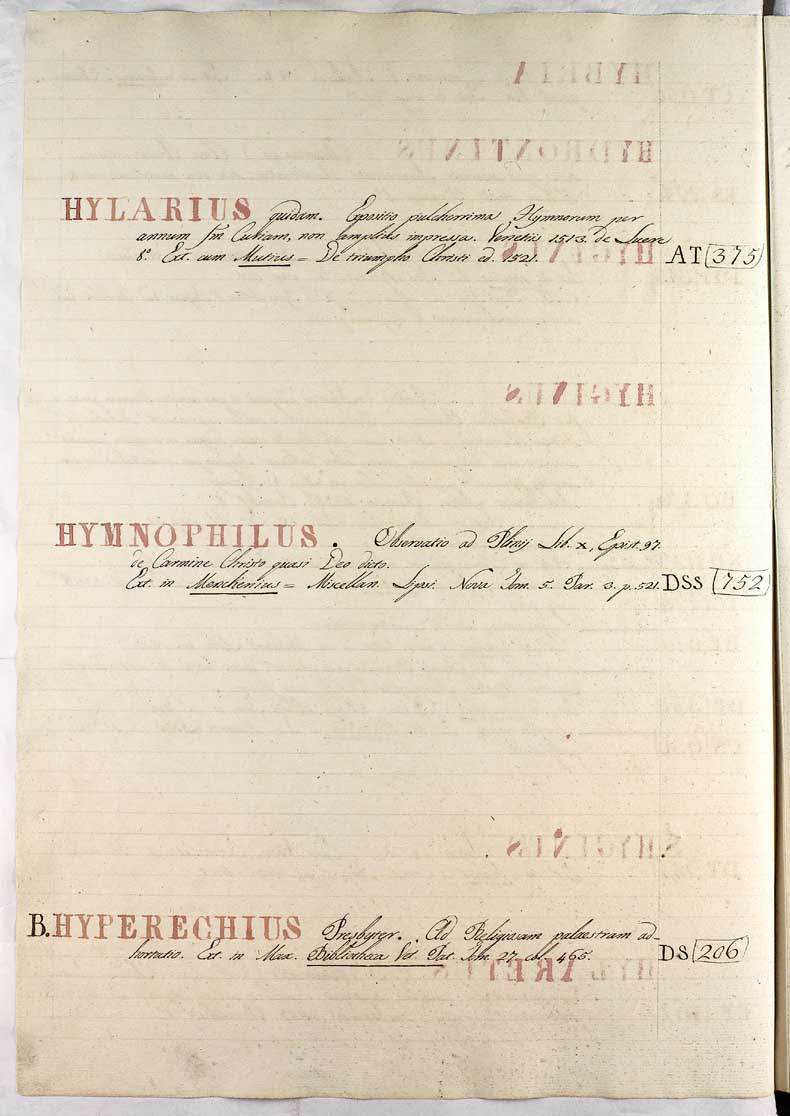 HYLARIUS quidam. Expositio pulcherrima Hymnorum per
annum s̄m Curiam, non amplius impressa. Venetiis 1513. de Luere
8.° Ext. cum Mutius = De triumpho Christi ed. 1521. AT 375
HYMNOPHILUS. Observatio ad Plinij Lib. X, Epist. 97.
de Carmine Christo quasi Deo dicto.
Ext. in Menchenius = Miscellan. Lipsi. Nova Tom. 5. Par. 3. p. 521. DSS 752
B. HYPERECHIUS Presbyter. Ad Religiosam palaestram ad-
hortatio. Ext. in Max. Bibliotheca Vet. Pat. Tom. 27. col. 465. DS 206